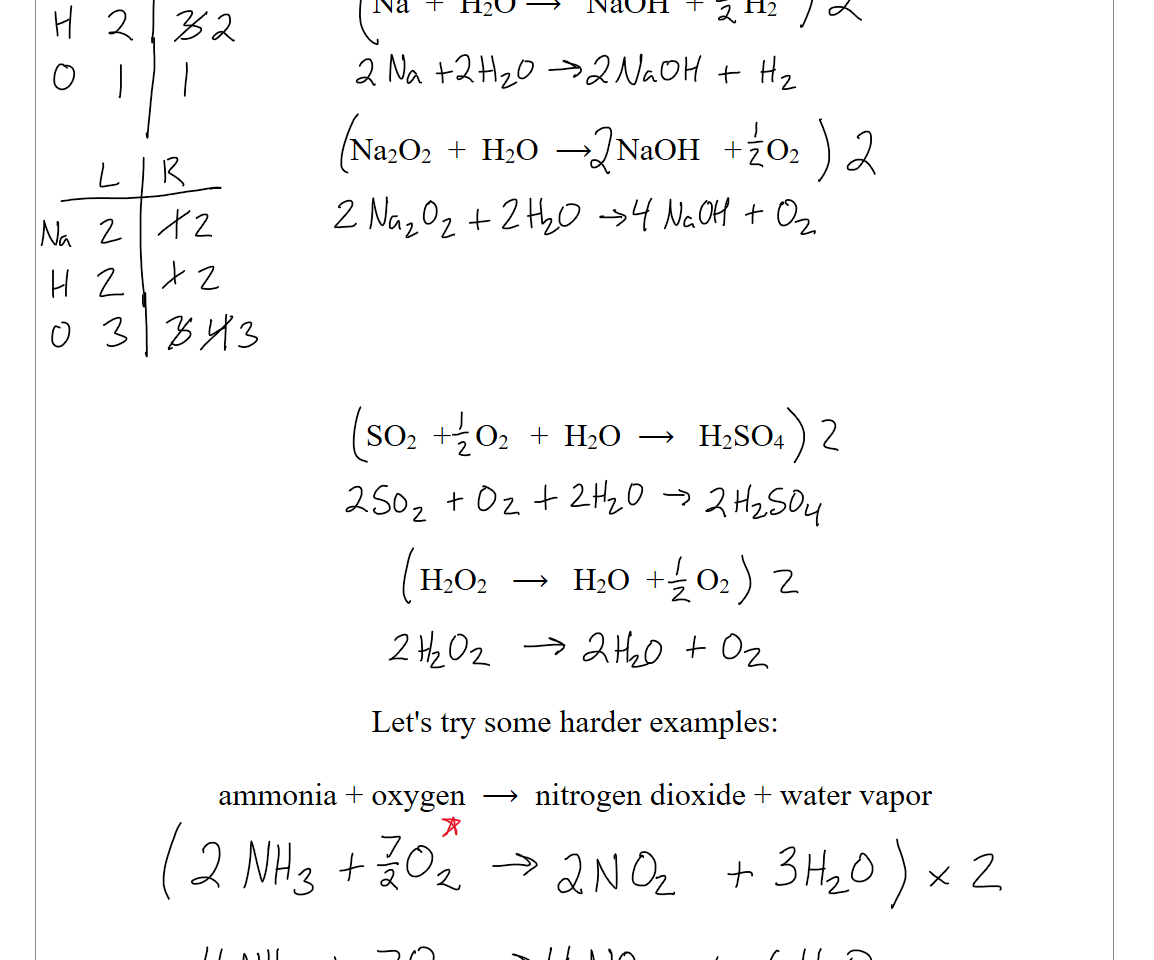 H 2 | 3 2
(Na + H₂O → NaOH + 1/2 H₂) 2
O 1 | 1
2 Na + 2H₂O → 2NaOH + H₂
(Na₂O₂ + H₂O → 2 NaOH + 1/2 O₂) 2
L | R
Na 2 | 1 2
2 Na₂O₂ + 2H₂O → 4 NaOH + O₂
H 2 | 1 2
O 3 | 3 4 3
(SO₂ + 1/2 O₂ + H₂O → H₂SO₄) 2
2SO₂ + O₂ + 2H₂O → 2H₂SO₄
(H₂O₂ → H₂O + 1/2 O₂) 2
2H₂O₂ → 2H₂O + O₂
Let's try some harder examples:
ammonia + oxygen → nitrogen dioxide + water vapor
(2 NH₃ + 7/2 O₂ → 2NO₂ + 3H₂O) × 2